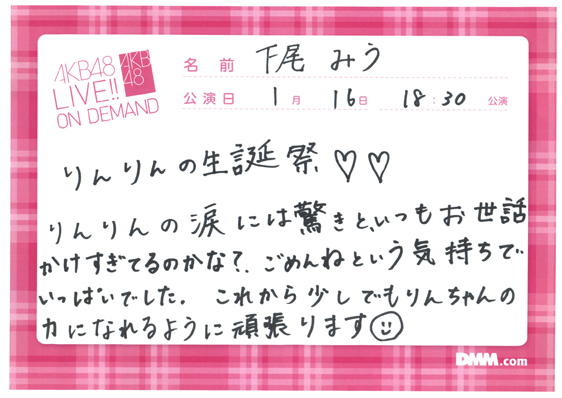 AKB48
LIVE!!
ON DEMAND
AKB
48
名前 下尾 みう
公演日 1月 16日 18:30 公演
りんりんの生誕祭♡♡
りんりんの涙には驚きと、いつもお世話
かけすぎてるのかな?、ごめんねという気持ちで
いっぱいでした。これから少しでもりんちゃんの
力になれるように頑張ります☺
DMM.com